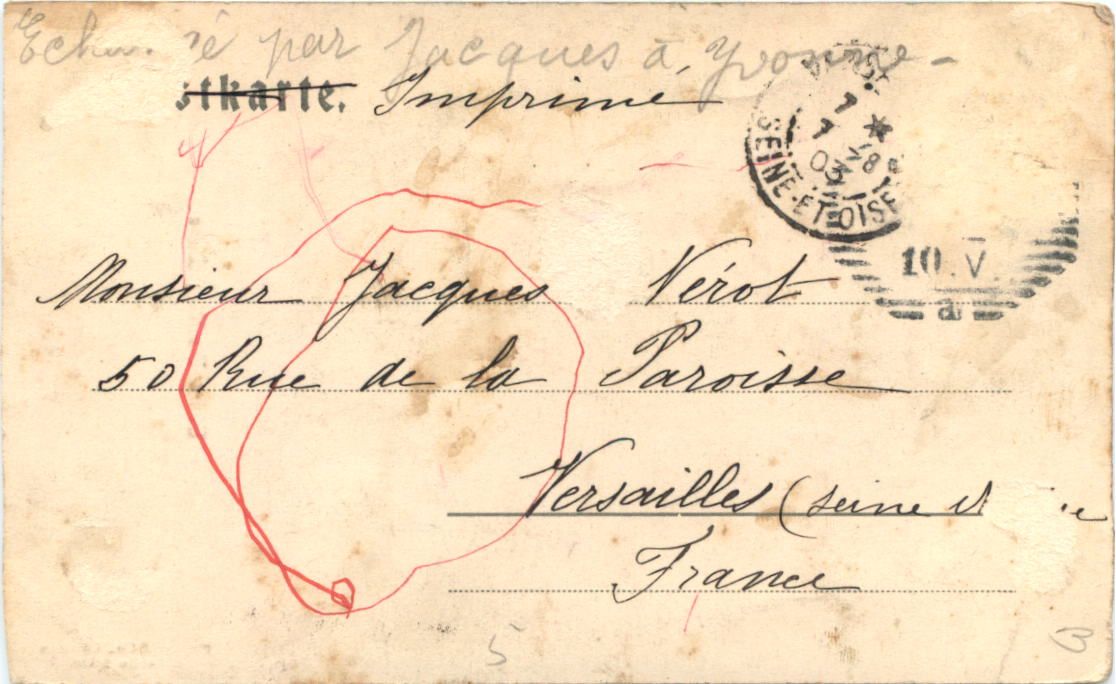 par Jacques à Yvonne -
stkarte. Imprimé
7 *
7
03
SEINE-ET-OISE
10. V.
a
Monsieur Jacques Nérot
50 Rue de la Paroisse
Versailles (Seine
France
5
B